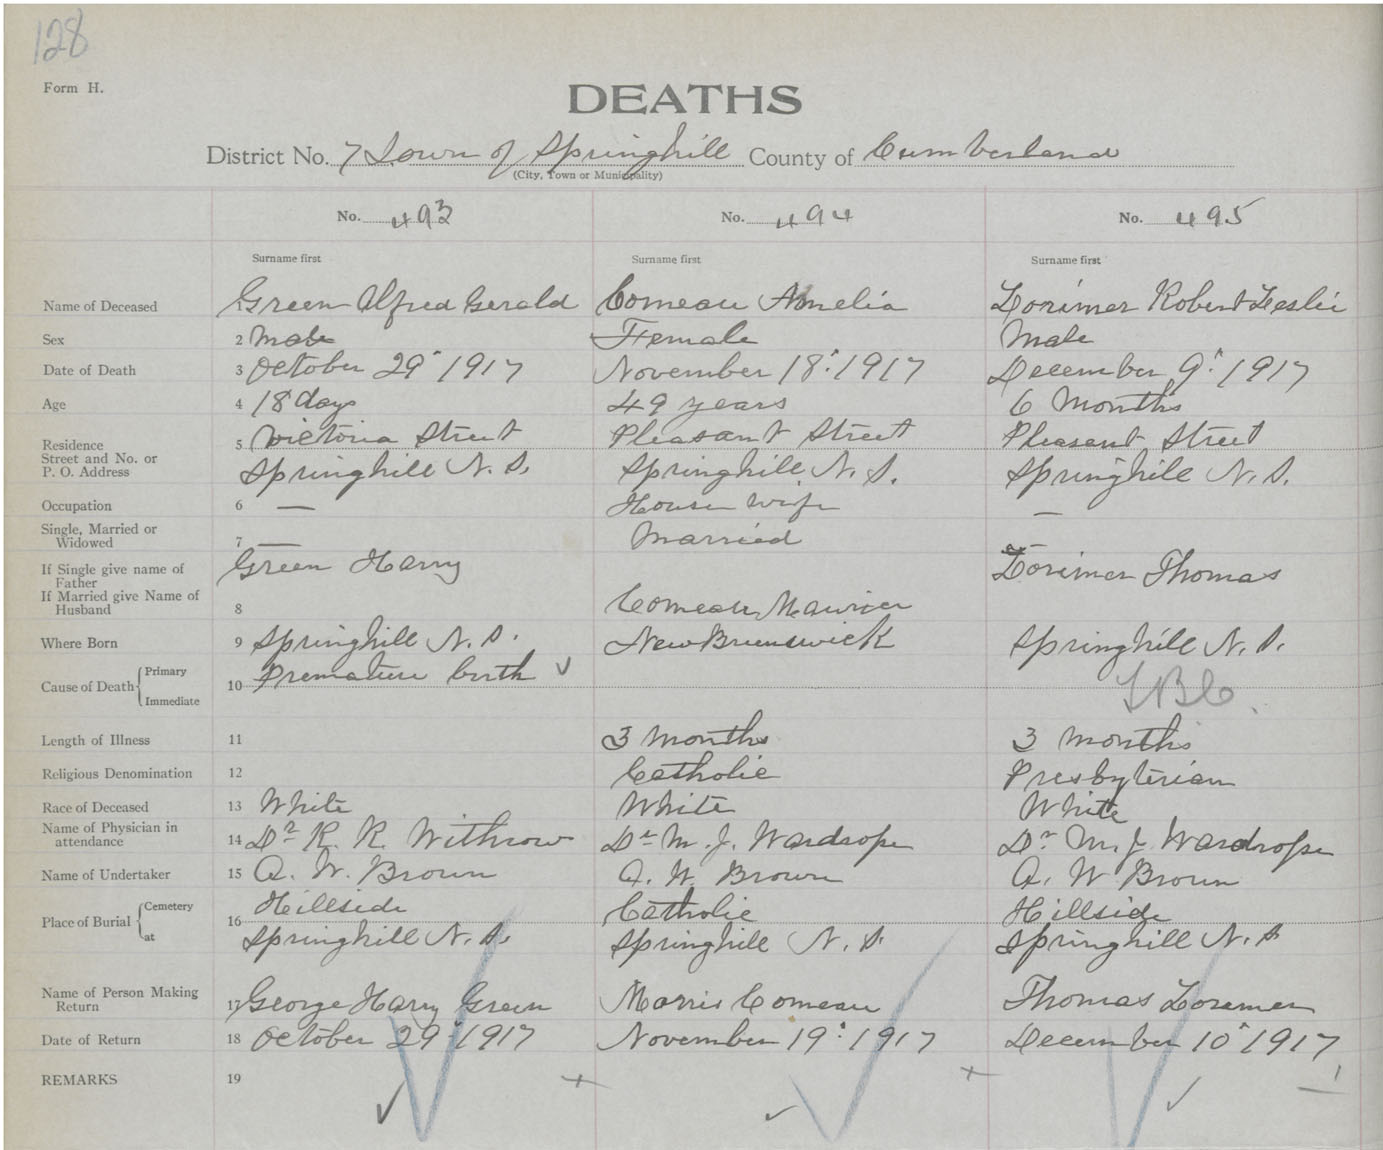 128
Form H.
DEATHS
District No. 7 Town of Springhill County of Cumberland
(City, Town or Municipality)
No. 493 No. 494 No. 495
Surname first Surname first Surname first
Name of Deceased 1 Green Alfred Gerald Comeau Amelia Lorimer Robert Leslie
Sex 2 Male Female Male
Date of Death 3 October 29" 1917 November 18" 1917 December 9" 1917
Age 4 18 days 49 years 6 Months
Residence 5 Victoria Street Pleasant Street Pleasant Street
Street and No. or
P. O. Address Springhill N. S. Springhill N. S. Springhill N. S.
Occupation 6 — House wife —
Single, Married or
Widowed 7 — Married
If Single give name of
Father Green Harry Lorimer Thomas
If Married give Name of
Husband 8 Comeau Maurice
Where Born 9 Springhill N. S. New Brunswick Springhill N. S.
Cause of Death Primary Premature birth
10
Immediate
Length of Illness 11 3 months 3 months
Religious Denomination 12 Catholic Presbyterian
Race of Deceased 13 White White White
Name of Physician in
attendance 14 Dr R. R. Withrow Dr M. J. Wardrope Dr M. J. Wardrope
Name of Undertaker 15 A. W. Brown A. W. Brown A. W Brown
Place of Burial Cemetery 16 Hillside Catholic Hillside
at Springhill N. S. Springhill N. S. Springhill N. S
Name of Person Making
Return 17 George Harry Green Morris Comeau Thomas Loremer
Date of Return 18 October 29" 1917 November 19" 1917 December 10" 1917
REMARKS 19